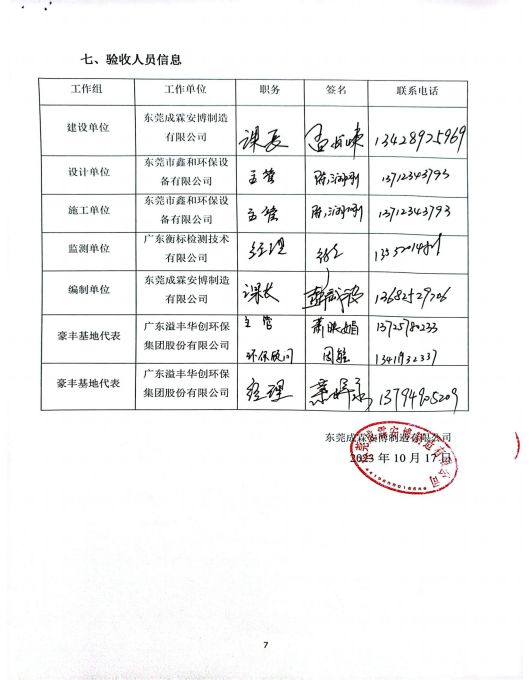 七、验收人员信息
工作组 工作单位 职务 签名 联系电话
建设单位 东莞成霖安博制造
有限公司 课长 13428925969
设计单位 东莞市鑫和环保设
备有限公司 主管 13712343793
施工单位 东莞市鑫和环保设
备有限公司 主管 13712343793
监测单位 广东衡标检测技术
有限公司 经理
编制单位 东莞成霖安博制造
有限公司 课长 13682529706
豪丰基地代表 广东溢丰华创环保
集团股份有限公司 主管 萧 娟 13725780233
环保顾问 13411932337
豪丰基地代表 广东溢丰华创环保
集团股份有限公司 经理 13794905209
东莞成霖安博制造有限公司
2023 年 10 月 17 日
7